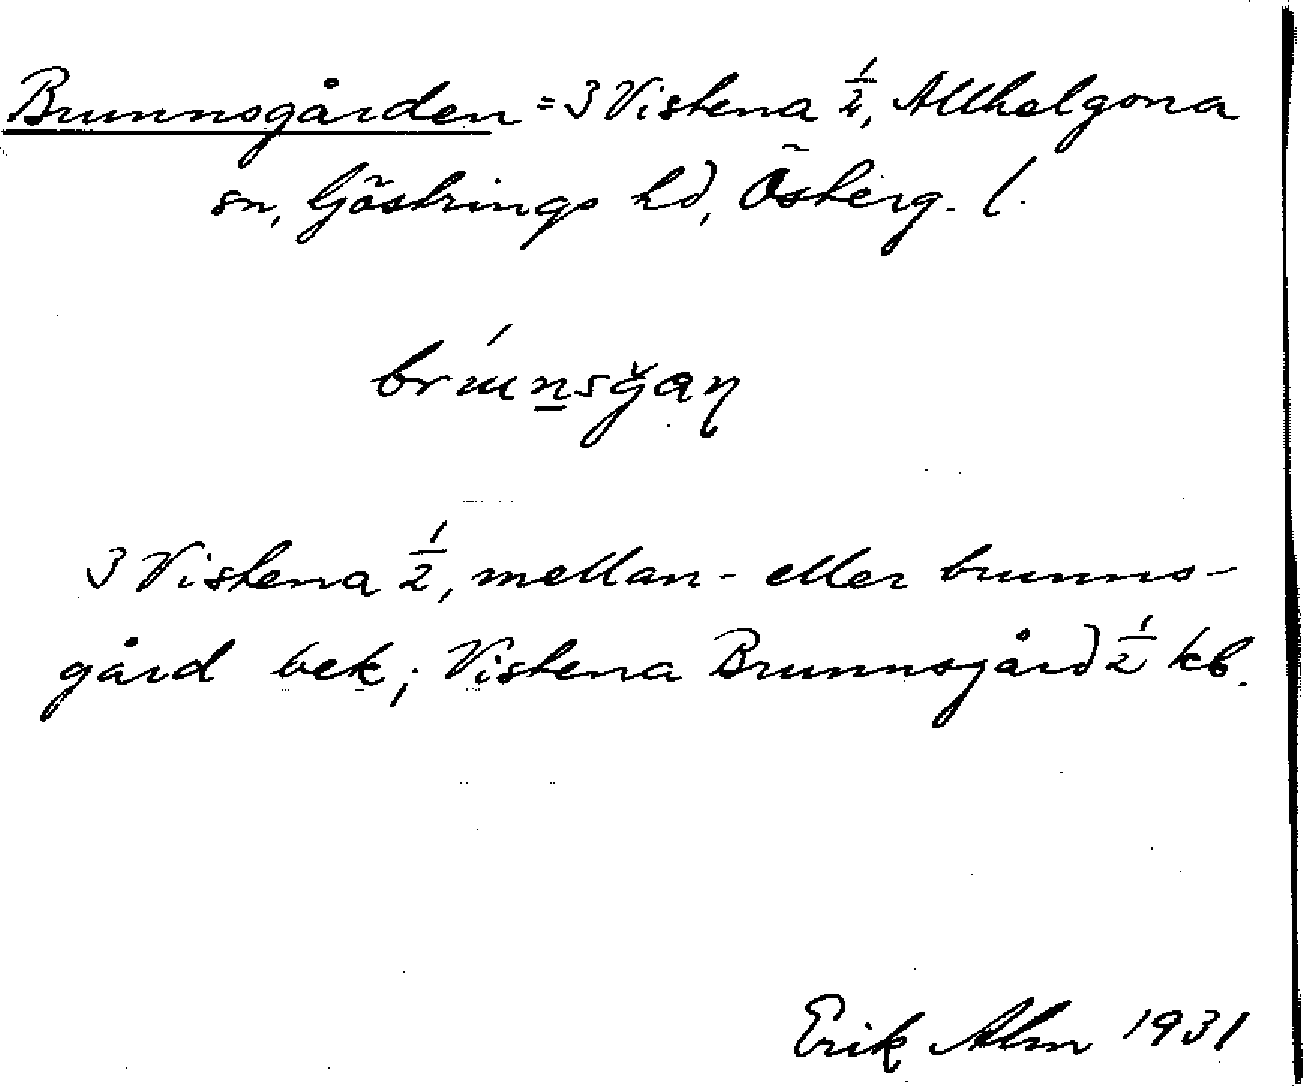 Brunnsgården = 3 Vistena ½, Allhelgona
sn, Göstrings hd, Österg. l.
brúnsğaŋ
3 Vistena ½, mellan- eller brunns-
gård bek; Vistena Brunnsgård ½ kb.
Erik Alm 1931